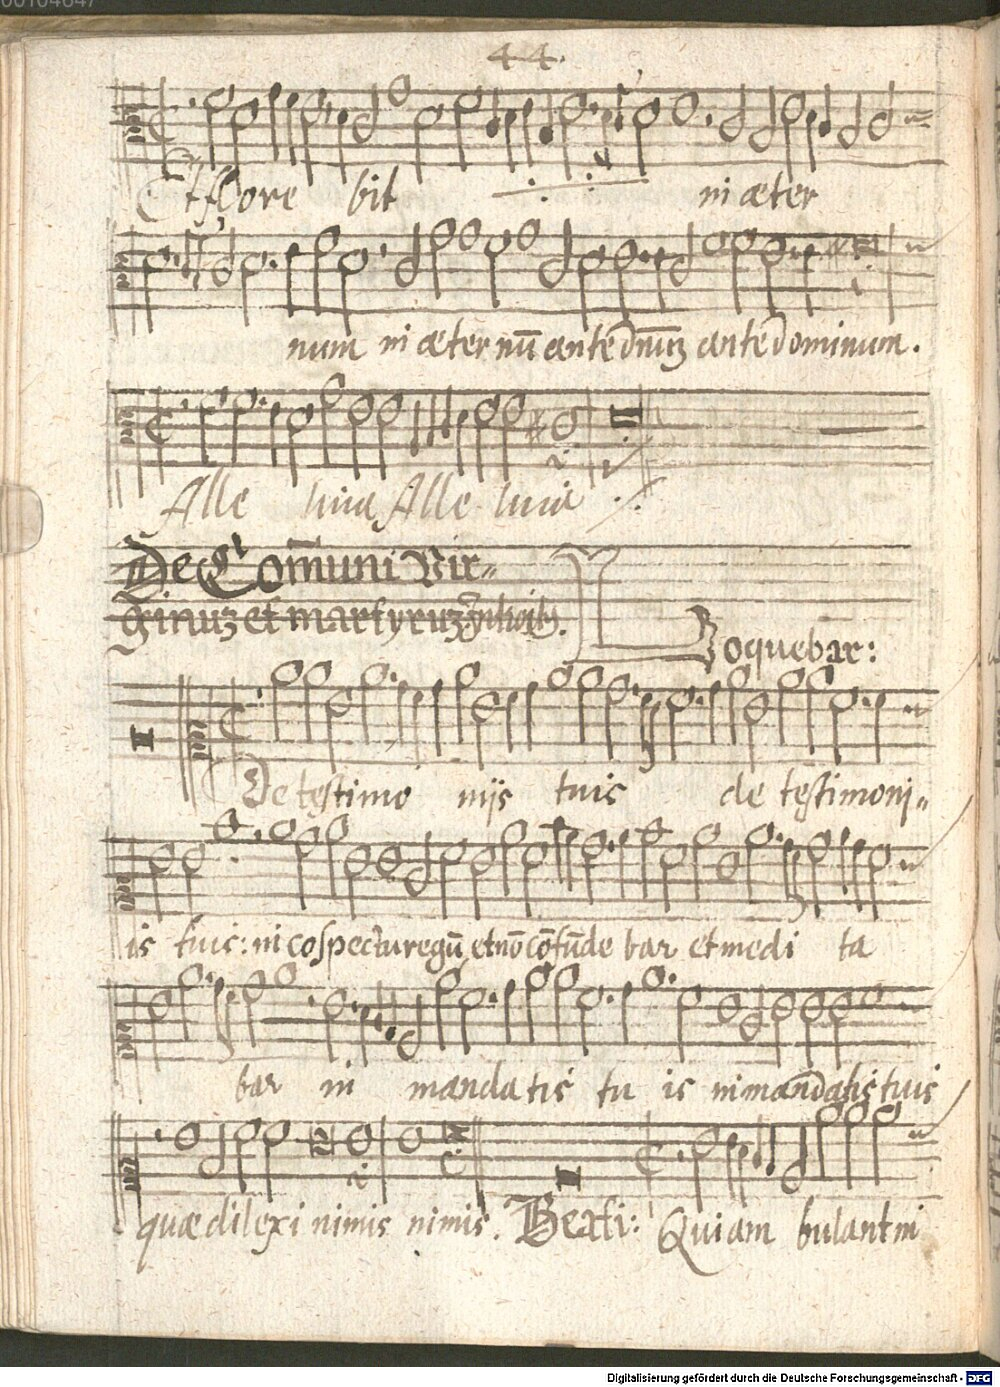 44.
Et flore bit ni æter
num ni æter nū ante dn̄m ante Dominum.
Alle luia Alle luia
De Com̄uni Vir=
ginuz et martyruz
Loquebar:
De testimo nijs tuis de testimoni=
is tuis: ni cōspectu regū et nō cōfūde bar et medi ta
bar in manda tis tu is ni mandatis tuis
quæ dilexi nimis nimis. Beati: Qui am bulant ni
Digitalisierung gefördert durch die Deutsche Forschungsgemeinschaft - DFG